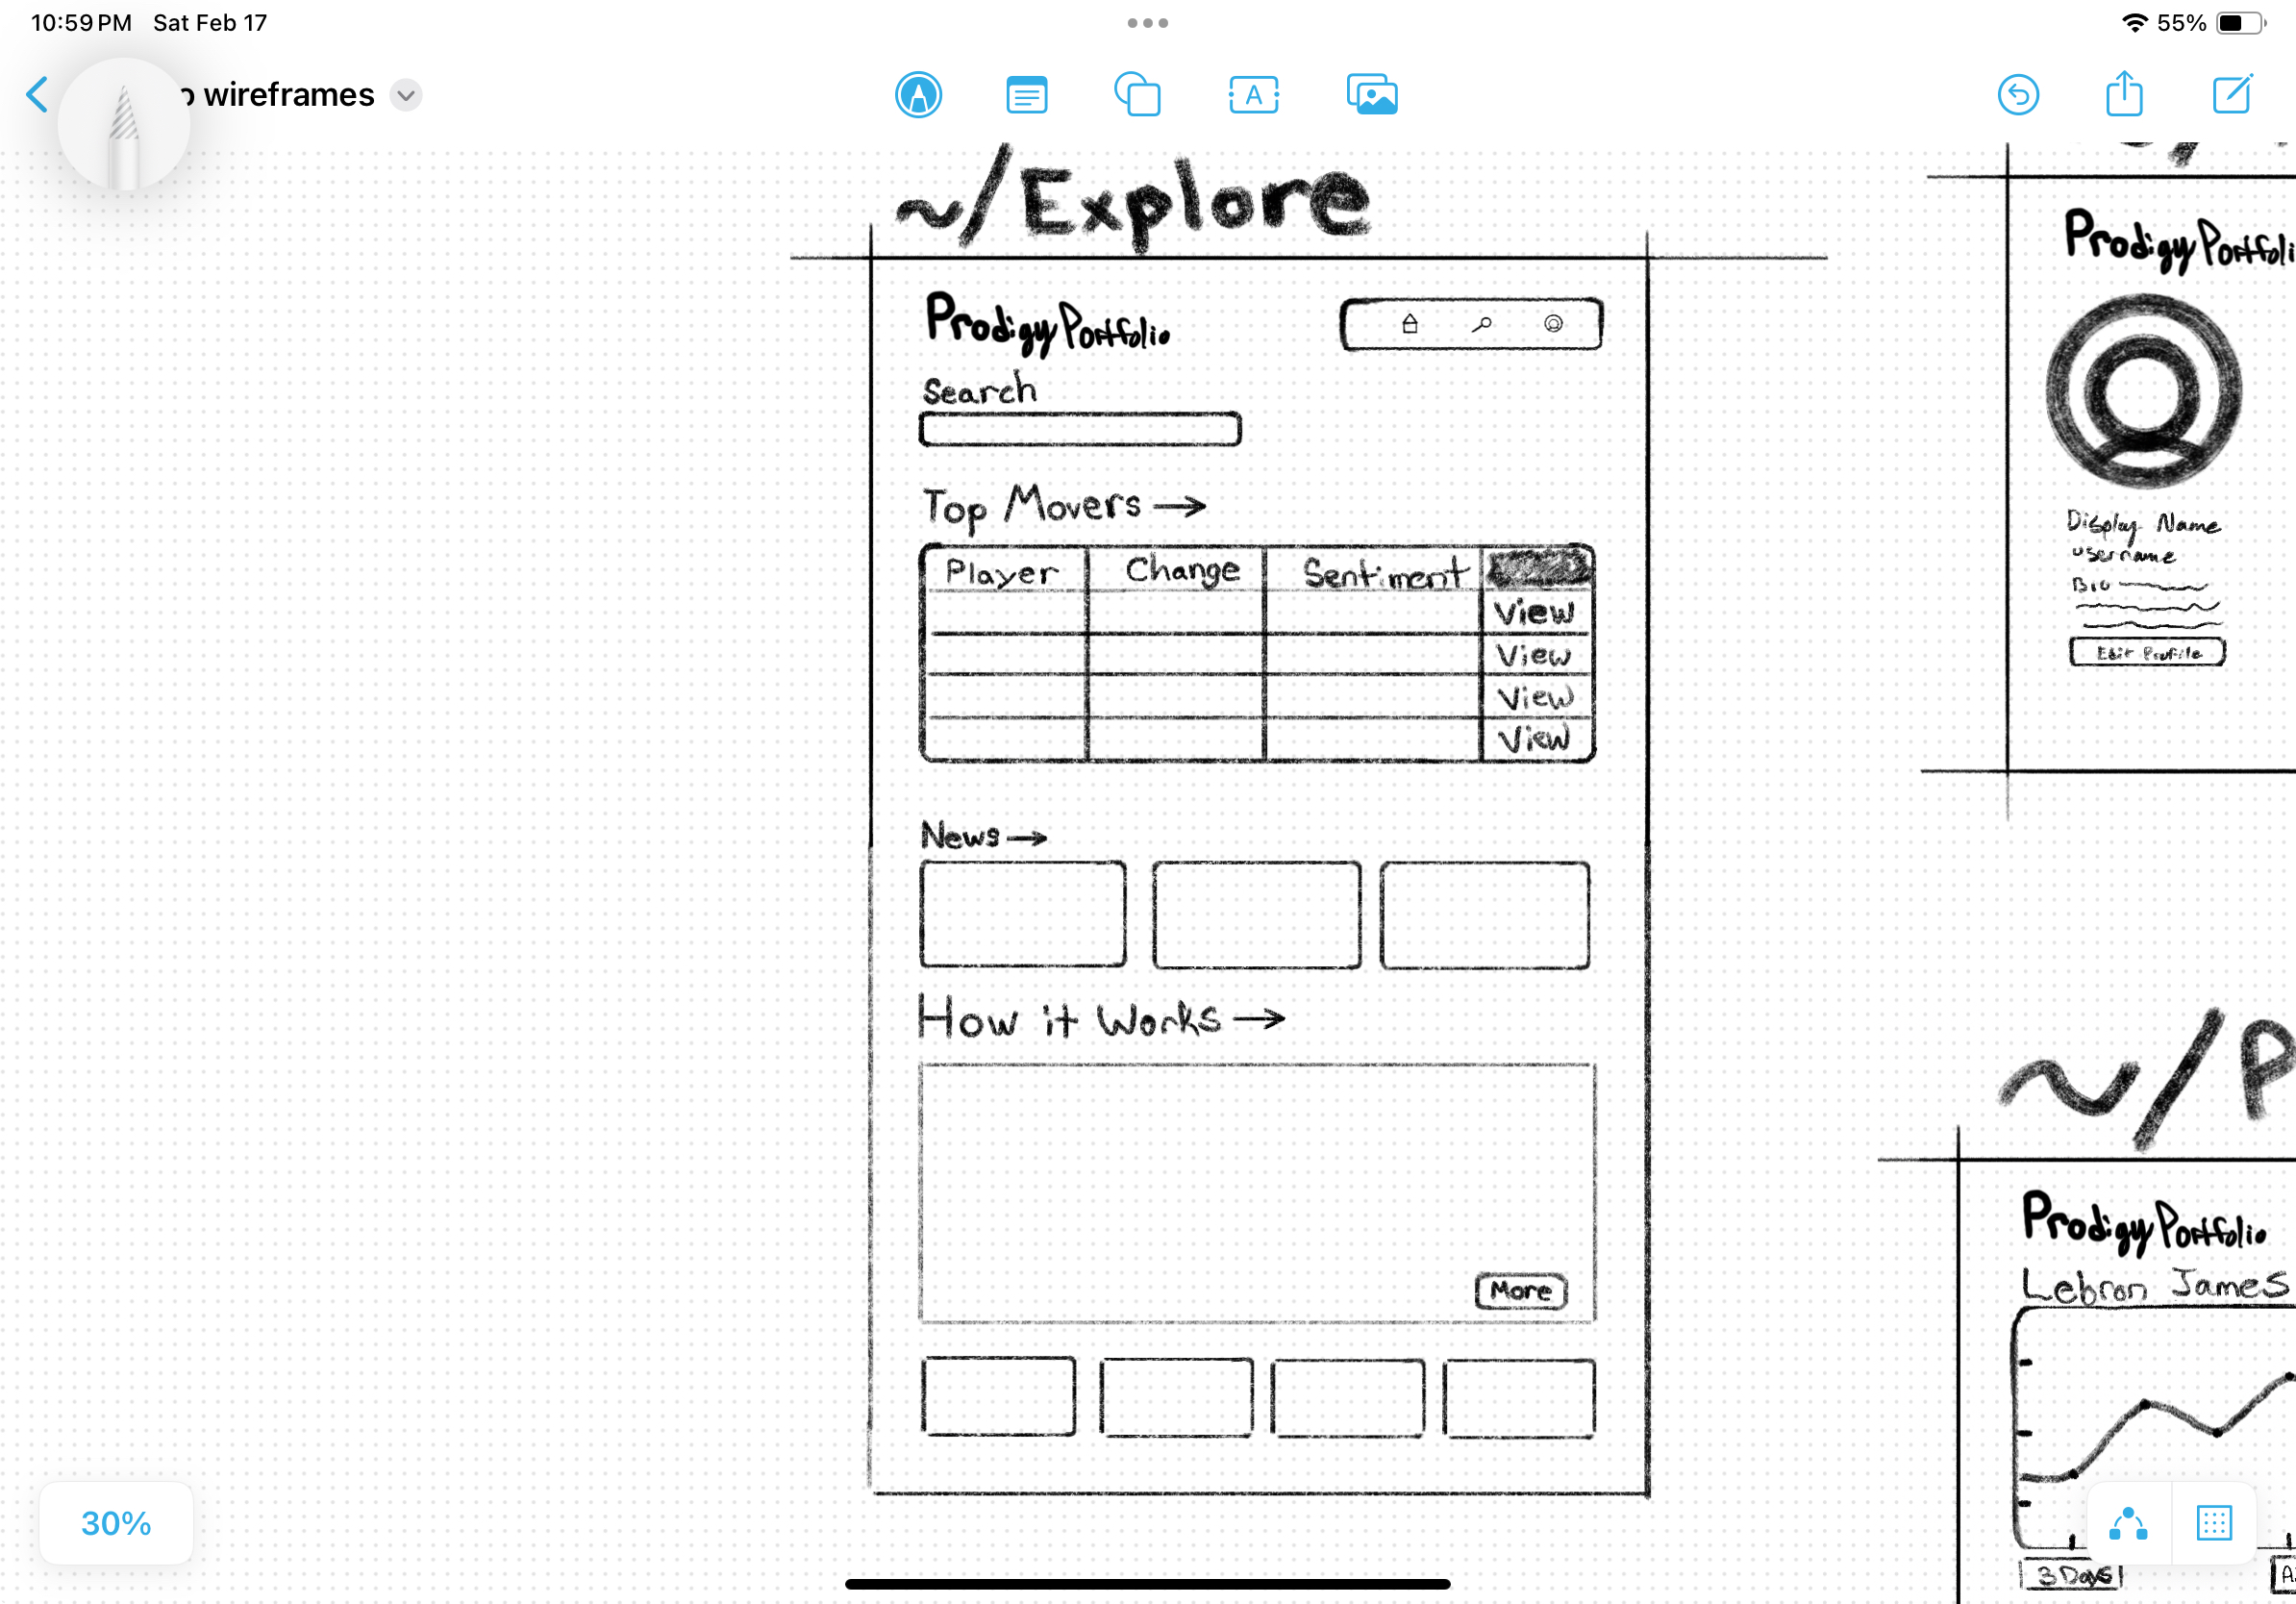 10:59 PM Sat Feb 17
55%
wireframes
A
~/Explore
Prodigy Portfolio
Search
Top Movers →
Player Change Sentiment
View
View
View
View
News →
How it Works →
More
Prodigy Portfoli
Display Name
username
Bio
Edit Profile
~/P
Prodigy Portfolio
Lebron James
3 Days
30%